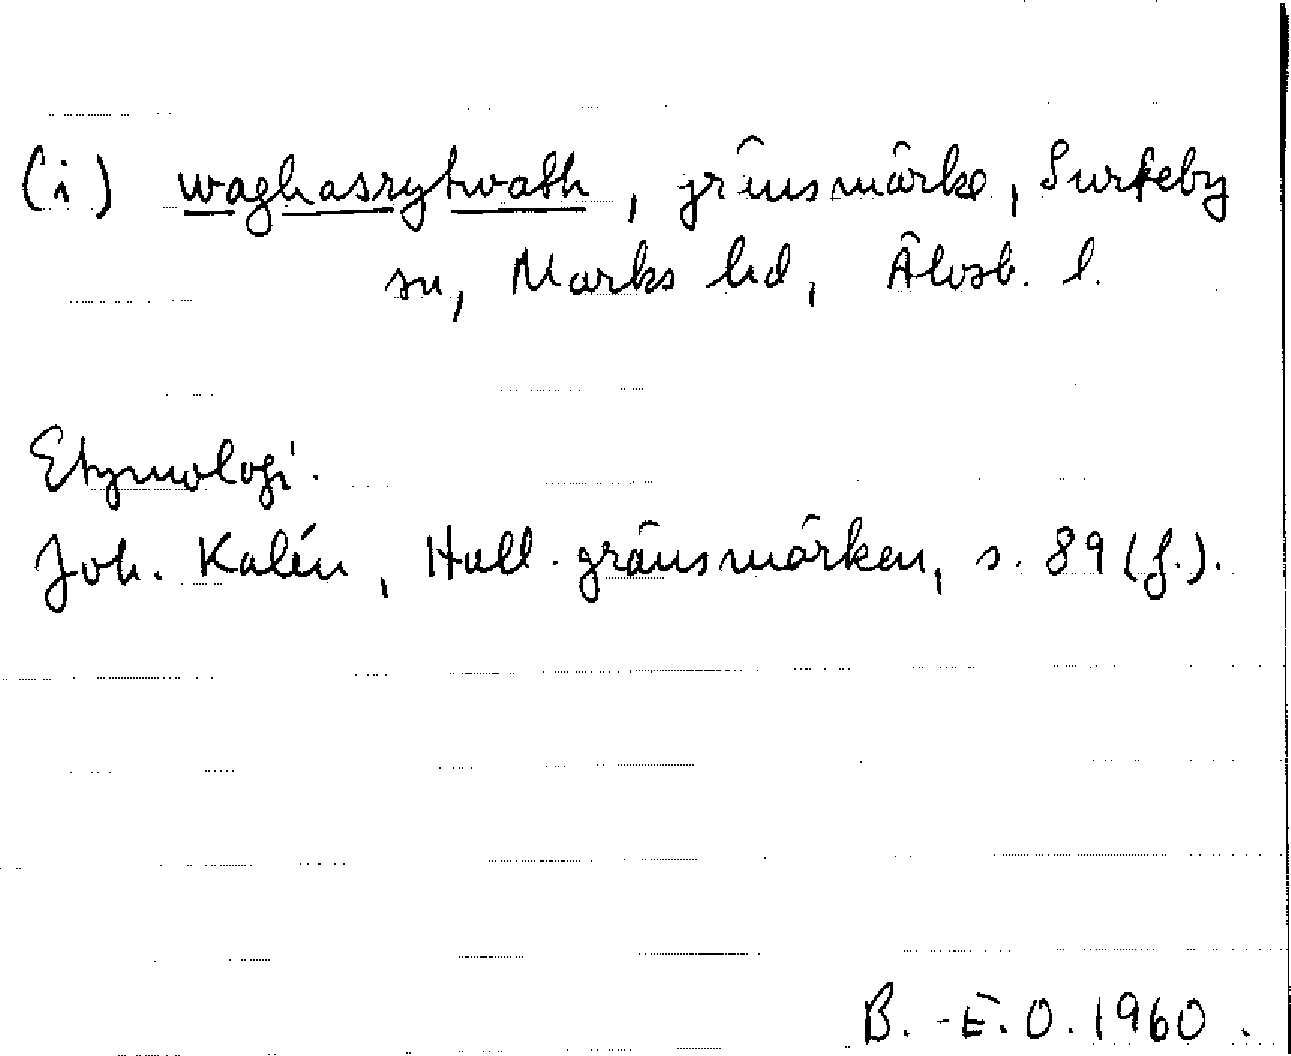 (i) waghasrythvath, gränsmärke, Surteby
sn, Marks hd, Älvsb. l.
Etymologi.
Joh. Kalén, Hall. gränsmärken, s. 89 (f.).
B.-E.O. 1960.